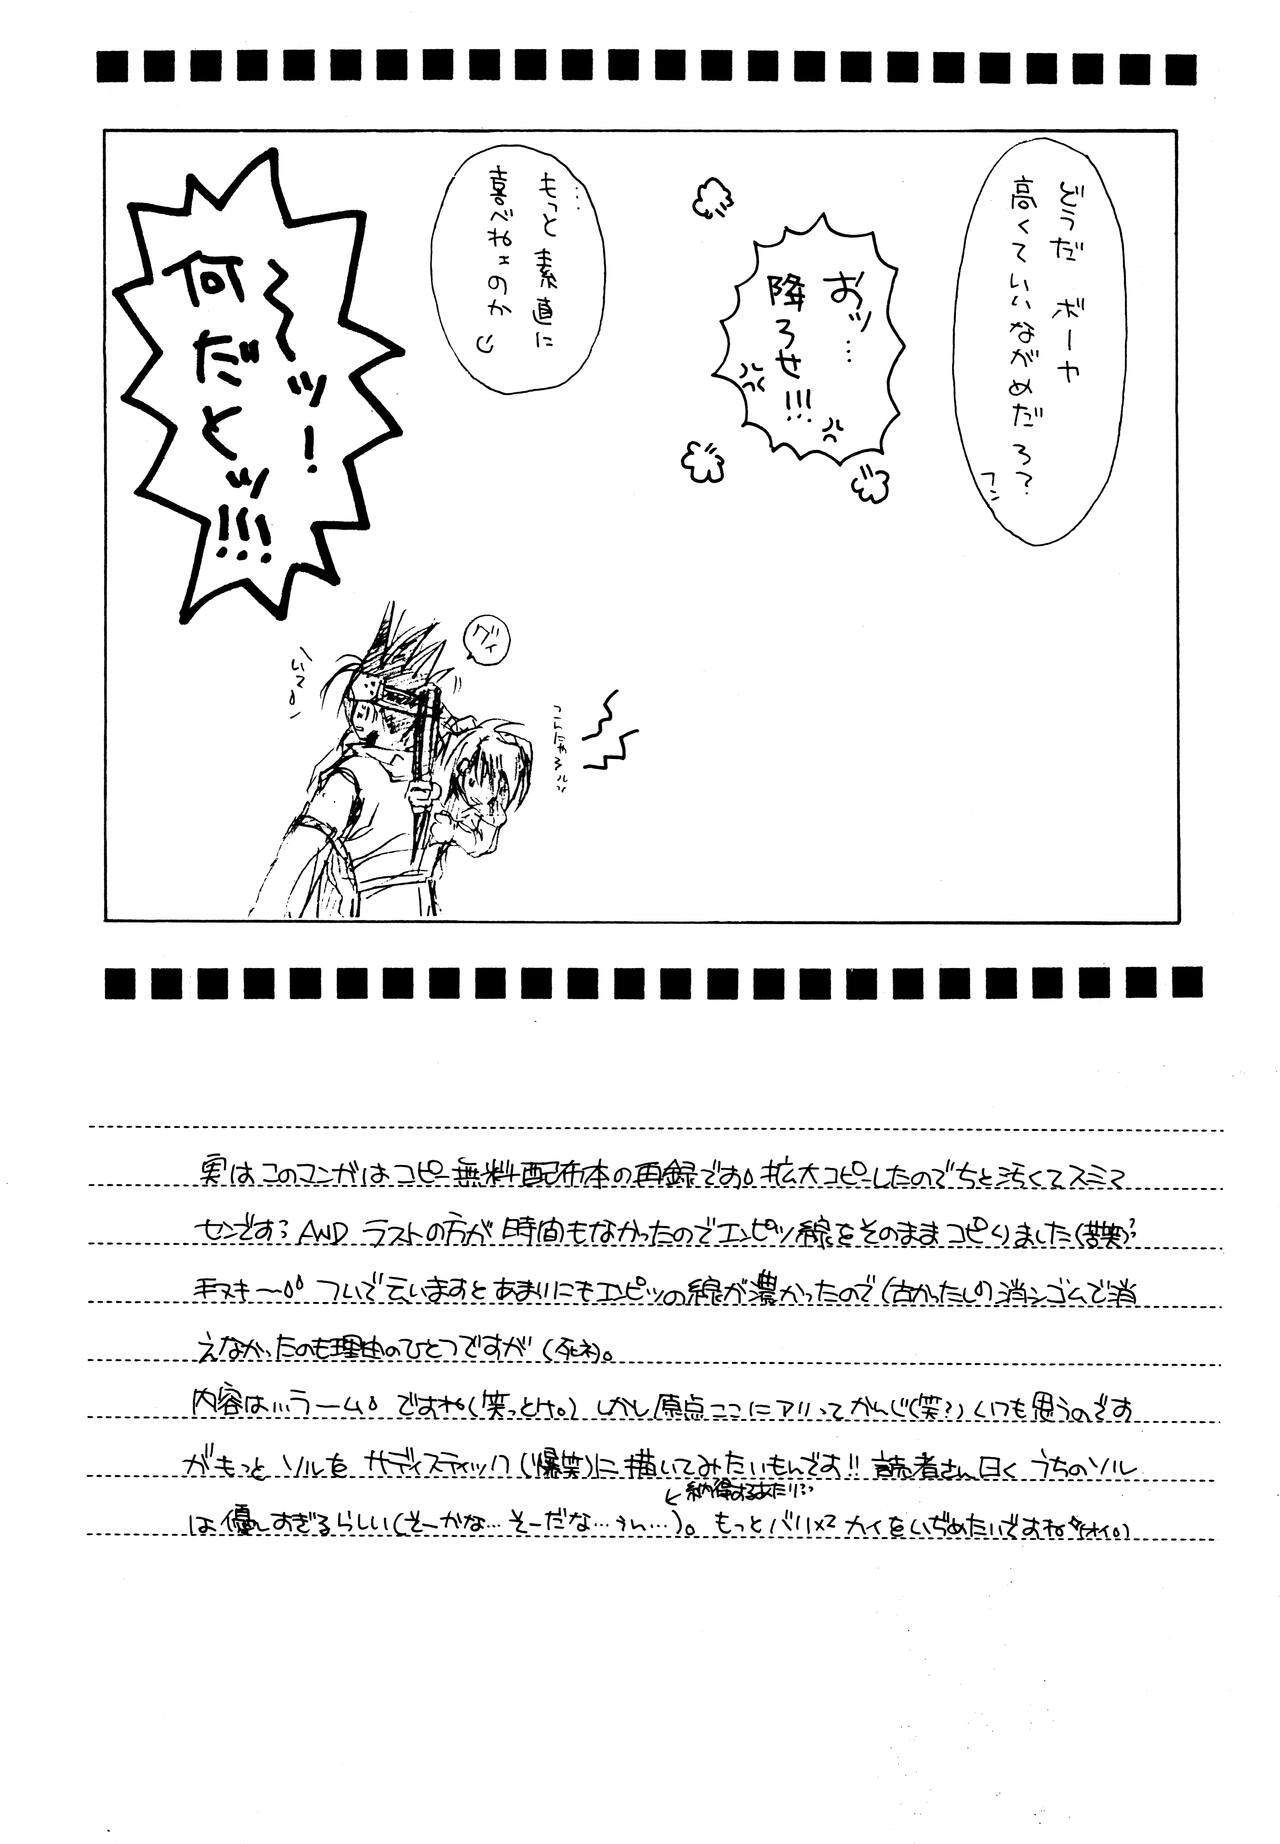 どうだ ボーヤ
高くていいながめだろ?
フン
おッ…
降ろせ!!!
…もっと素直に
喜べねェのか
〜〜ッ!
何だとッ!!!
グイ
いて
実はこのマンガはコピー無料配布本の再録です。拡大コピーしたのでちと汚くてスミマ
センです。AND ラストの方が時間もなかったのでエンピツ線をそのままコピりました(苦笑)
手ヌキ〜 ついで云いますとあまりにもエンピツの線が濃かったので(古かったし)消シゴムで消
えなかったのも理由のひとつですが(死ネ)。
内容は…ラーム ですね(笑っとけ。)しかし原点ここにアリってかんじ(笑?)いつも思うのです
がもっとソルをサディスティック(爆笑)に描いてみたいもんです!! 読者さん曰くうちのソル
納得するあたり…
は優しすぎるらしい(そーかな…そーだな…うん…)。もっとバリバリカイをいぢめたいですね(オイ。)